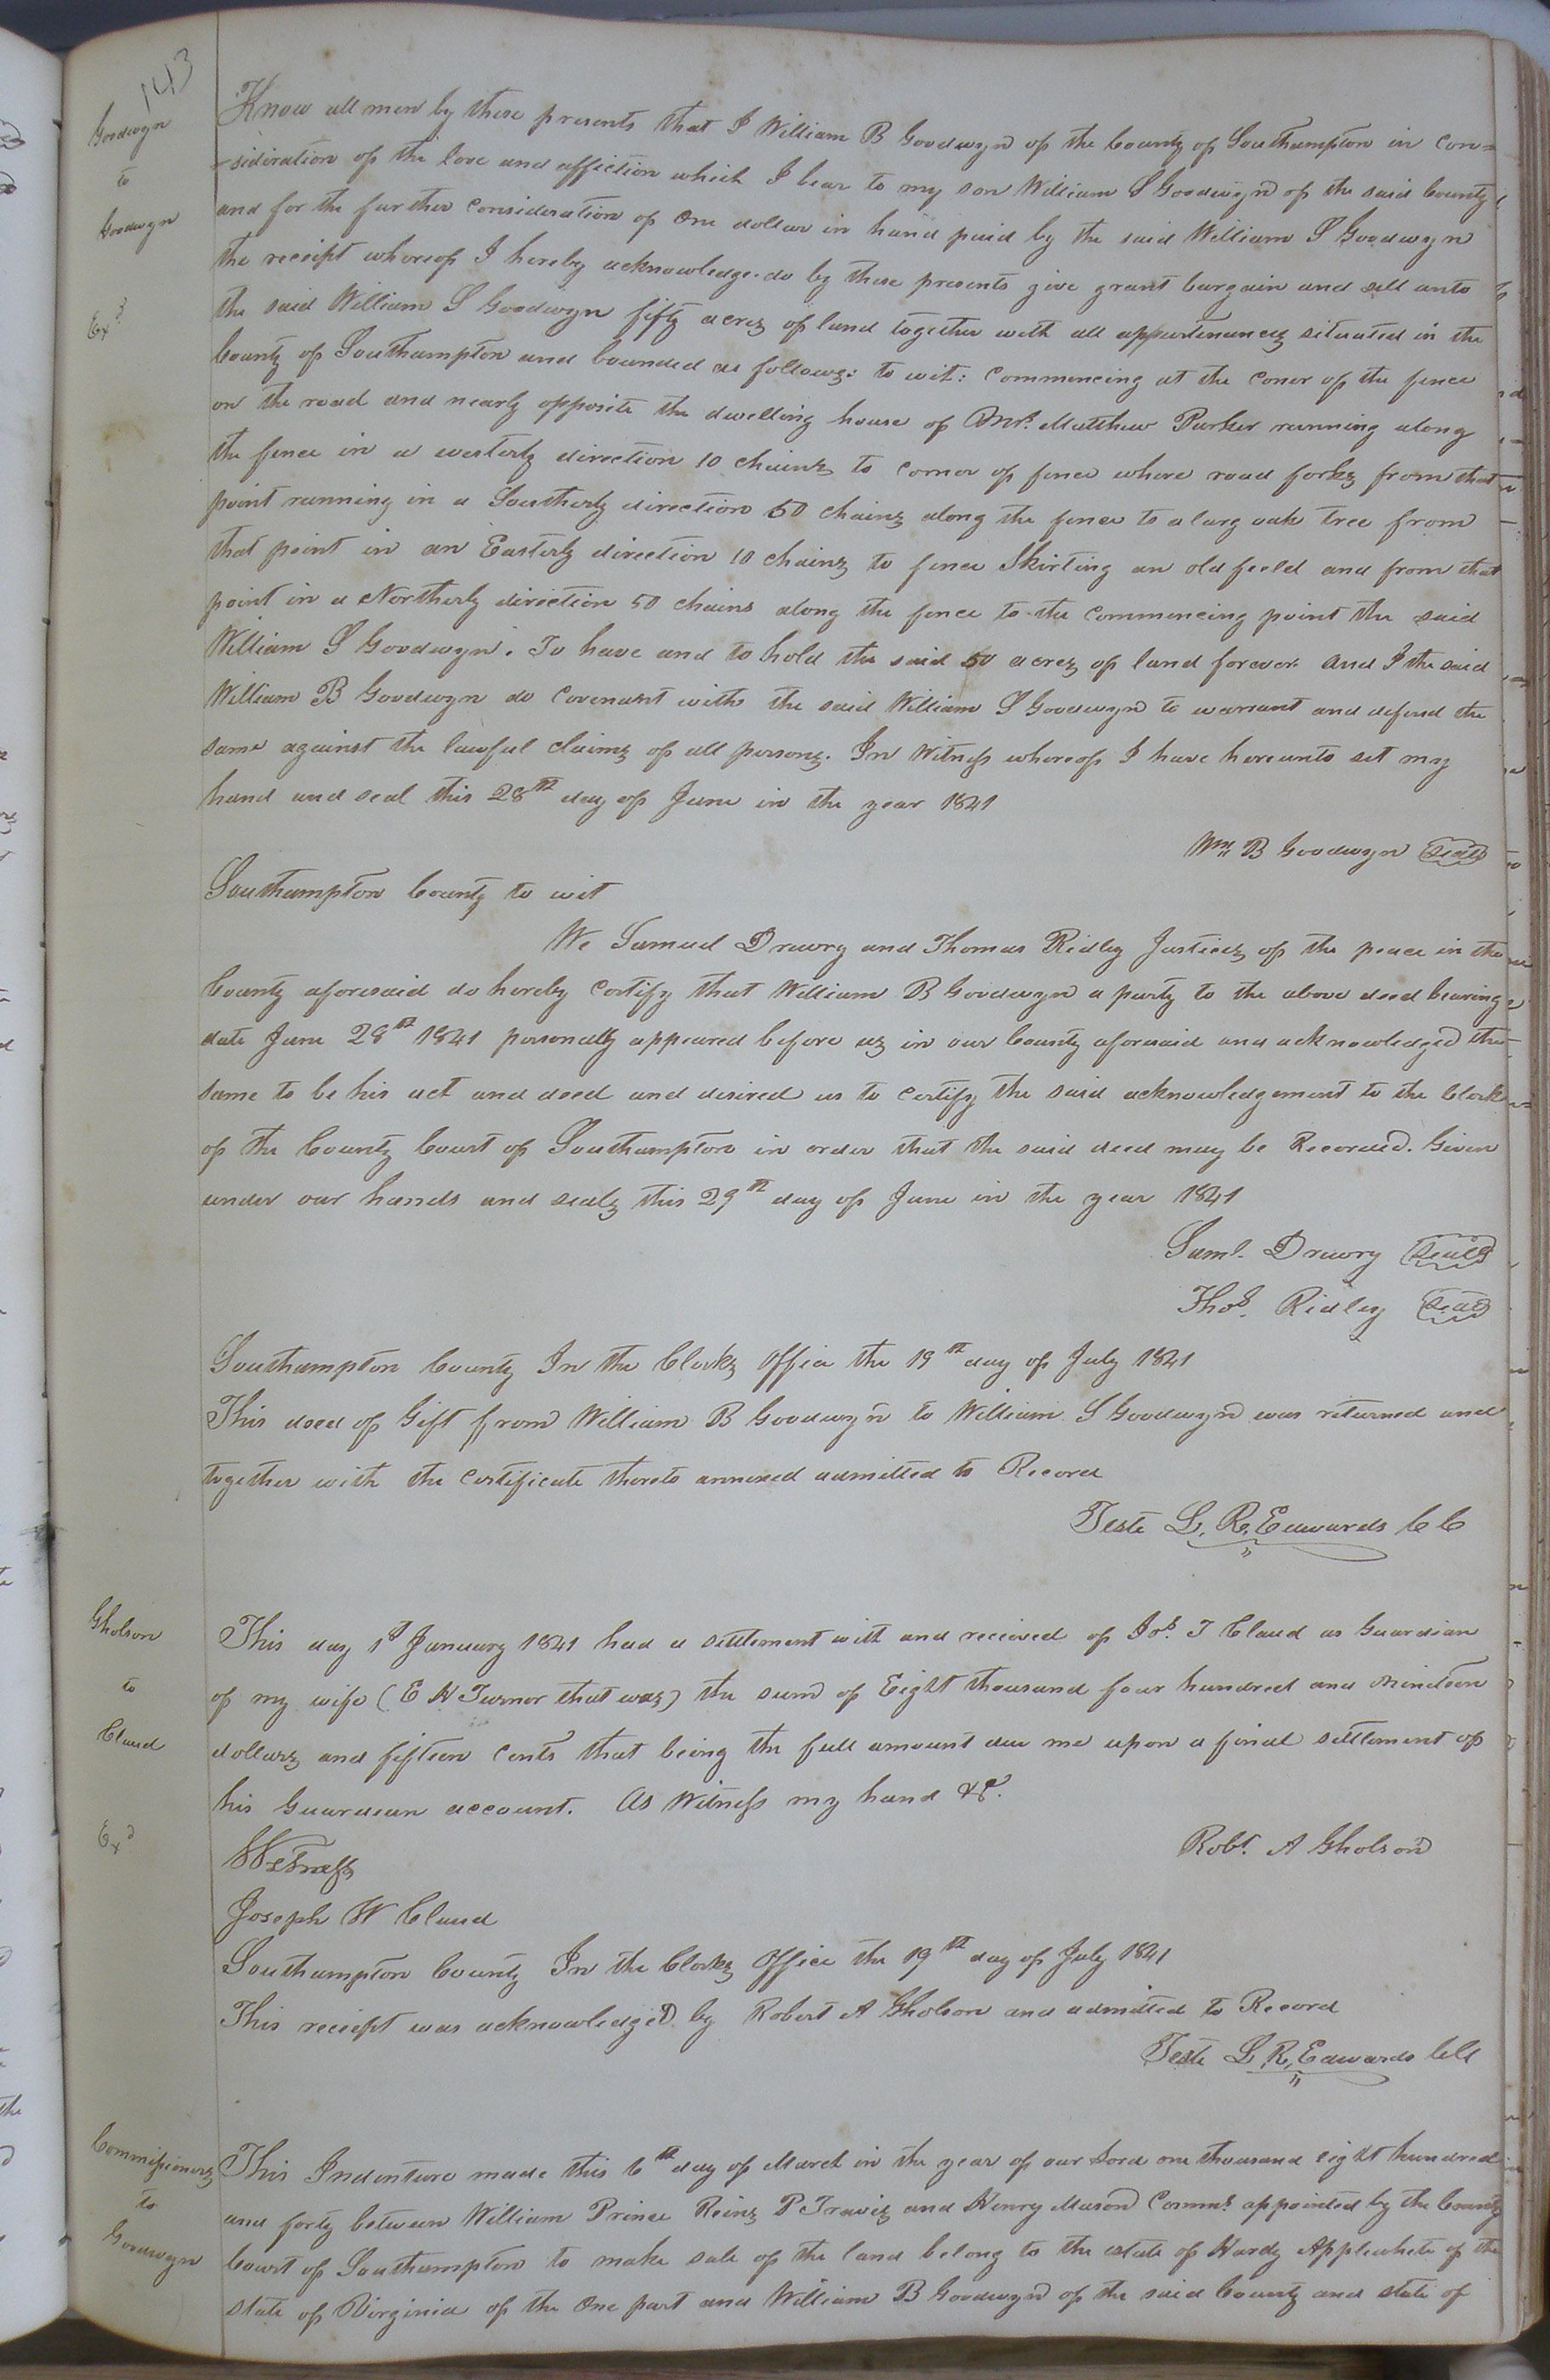 143
Goodwyn
to
Goodwyn
Exd
Know all men by these presents that I William B Goodwyn of the County of Southampton in con=
-sideration of the love and affection which I bear to my son William S Goodwyn of the said County
and for the further consideration of One dollar in hand paid by the said William S Goodwyn
the receipt whereof I hereby acknowledge. do by these presents give grant bargain and sell unto
the said William S Goodwyn fifty acres of land together with all appurtenances situated in the
County of Southampton and bounded as follows: to wit: Commencing at the Conor of the fence
on the road and nearly opposite the dwelling house of Mr. Matthew Parker running along
the fence in a westerly direction 10 chains to Cornor of fence where road forks from that
point running in a Southerly direction 50 chains along the fence to a larg oak tree from
that point in an Easterly direction 10 chains to fence Skirting an old feeld and from that
point in a Northerly direction 50 chains along the fence to the Commencing point the said
William S Goodwyn. To have and to hold the said 50 acres of land forever. And I the said
William B Goodwyn do Covenant with the said William S Goodwyn to warrant and defend the
same against the lawful claims of all persons. In Witness whereof I have hereunto set my
hand and seal this 28th day of June in the year 1841
Wm B Goodwyn Seal
Southampton County to wit
We Samuel Drewry and Thomas Ridley Justices of the peace in the
County aforesaid do hereby Certify that William B Goodwyn a party to the above deed bearing
date June 28th 1841 personally appeared before us in our County aforesaid and acknowledged the
same to be his act and deed and desired us to Certify the said acknowledgement to the Clerk
of the County Court of Southampton in order that the said deed may be Recorded. Given
under our hands and seals this 29th day of June in the year 1841
Saml. Drewry Seal
Thos. Ridley Seal
Southampton County In the Clerks Office the 19th day of July 1841
This deed of Gift from William B Goodwyn to William S Goodwyn was returned and
together with the Certificate thereto annexed admitted to Record
Teste L. R. Edwards CC
Gholson
to
Claud
Exd
This day 1st January 1841 had a settlement with and recieved of Jos. T Claud as Guardian
of my wife (E N Turner that was) the sum of Eight thousand four hundred and nineteen
dollars and fifteen Cents that being the full amount due me upon a final settlement of
his Guardian account. As Witness my hand &c.
Robt. A Gholson
Witness
Joseph W Claud
Southampton County In the Clerks Office the 19th day of July 1841
This receipt was acknowledged by Robert A Gholson and admitted to Record
Teste L. R. Edwards CC
Commissioners
to
Goodwyn
This Indenture made this 6th day of March in the year of our Lord one thousand eight hundred
and forty between William Prince Reins P Travis and Henry Mason Comms. appointed by the County
Court of Southampton to make sale of the land belong to the estate of Hardy Applewhite of the
State of Virginia of the One part and William B Goodwyn of the said County and State of